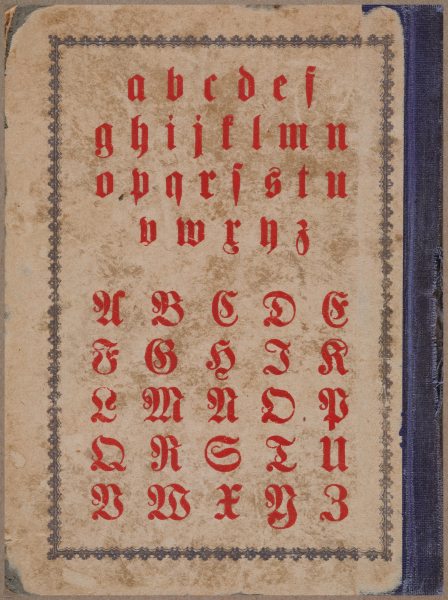 a b c d e f
g h i j k l m n
o p q r ſ s t u
v w x y z
A B C D E
F G H I K
L M N O P
Q R S T U
V W X Y Z